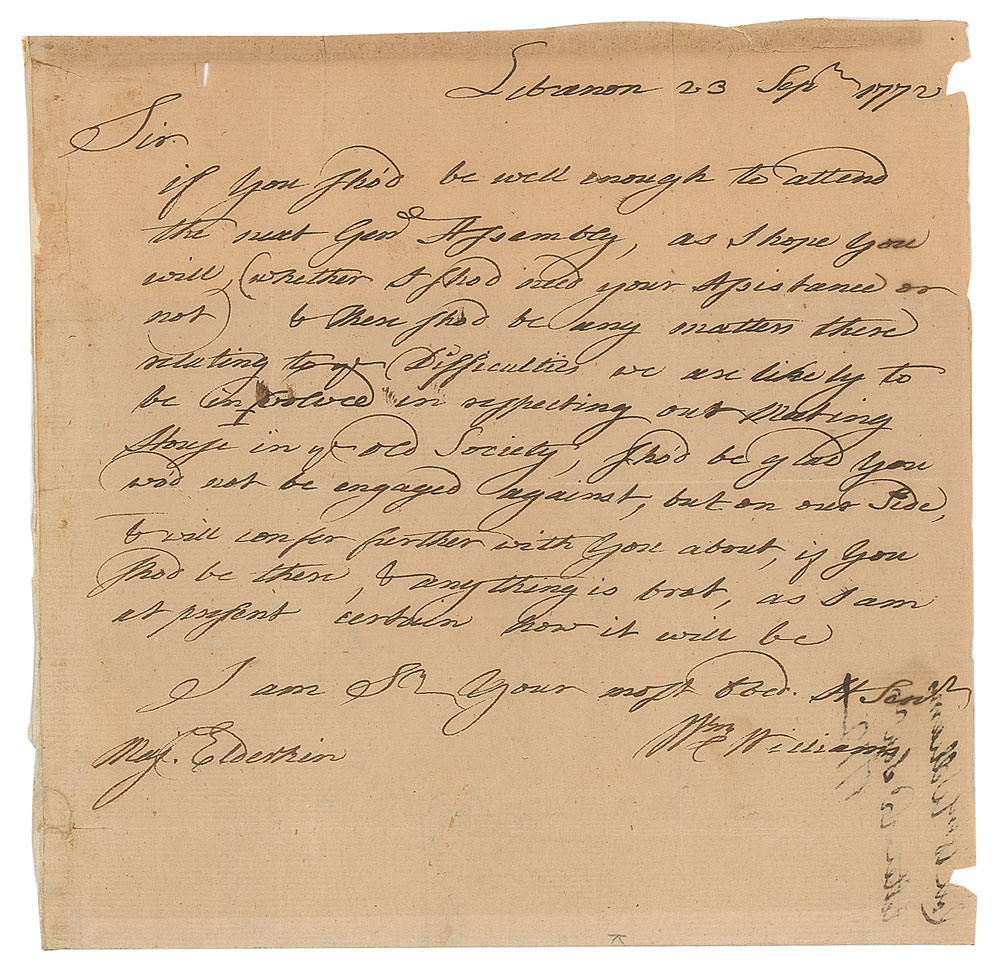 Lebanon 23 Sepr 1772
Sir
if You sho'd be well enough to attend
the next Genl Assembly, as I hope You
will, (whether I shod need your Assistance or
not) & there shod be any matters there
relating to ye Difficulties we are likely to
be involved in respecting our Meeting
House in ye old Society, shod be glad You
wod not be engaged against, but on our Side,
& will confer further with You about, if You
shod be there, & any thing is brot, as I am
at present certain how it will be
I am Sr Your most Obed. Servt
Wm Williams
Maj. Elderkin